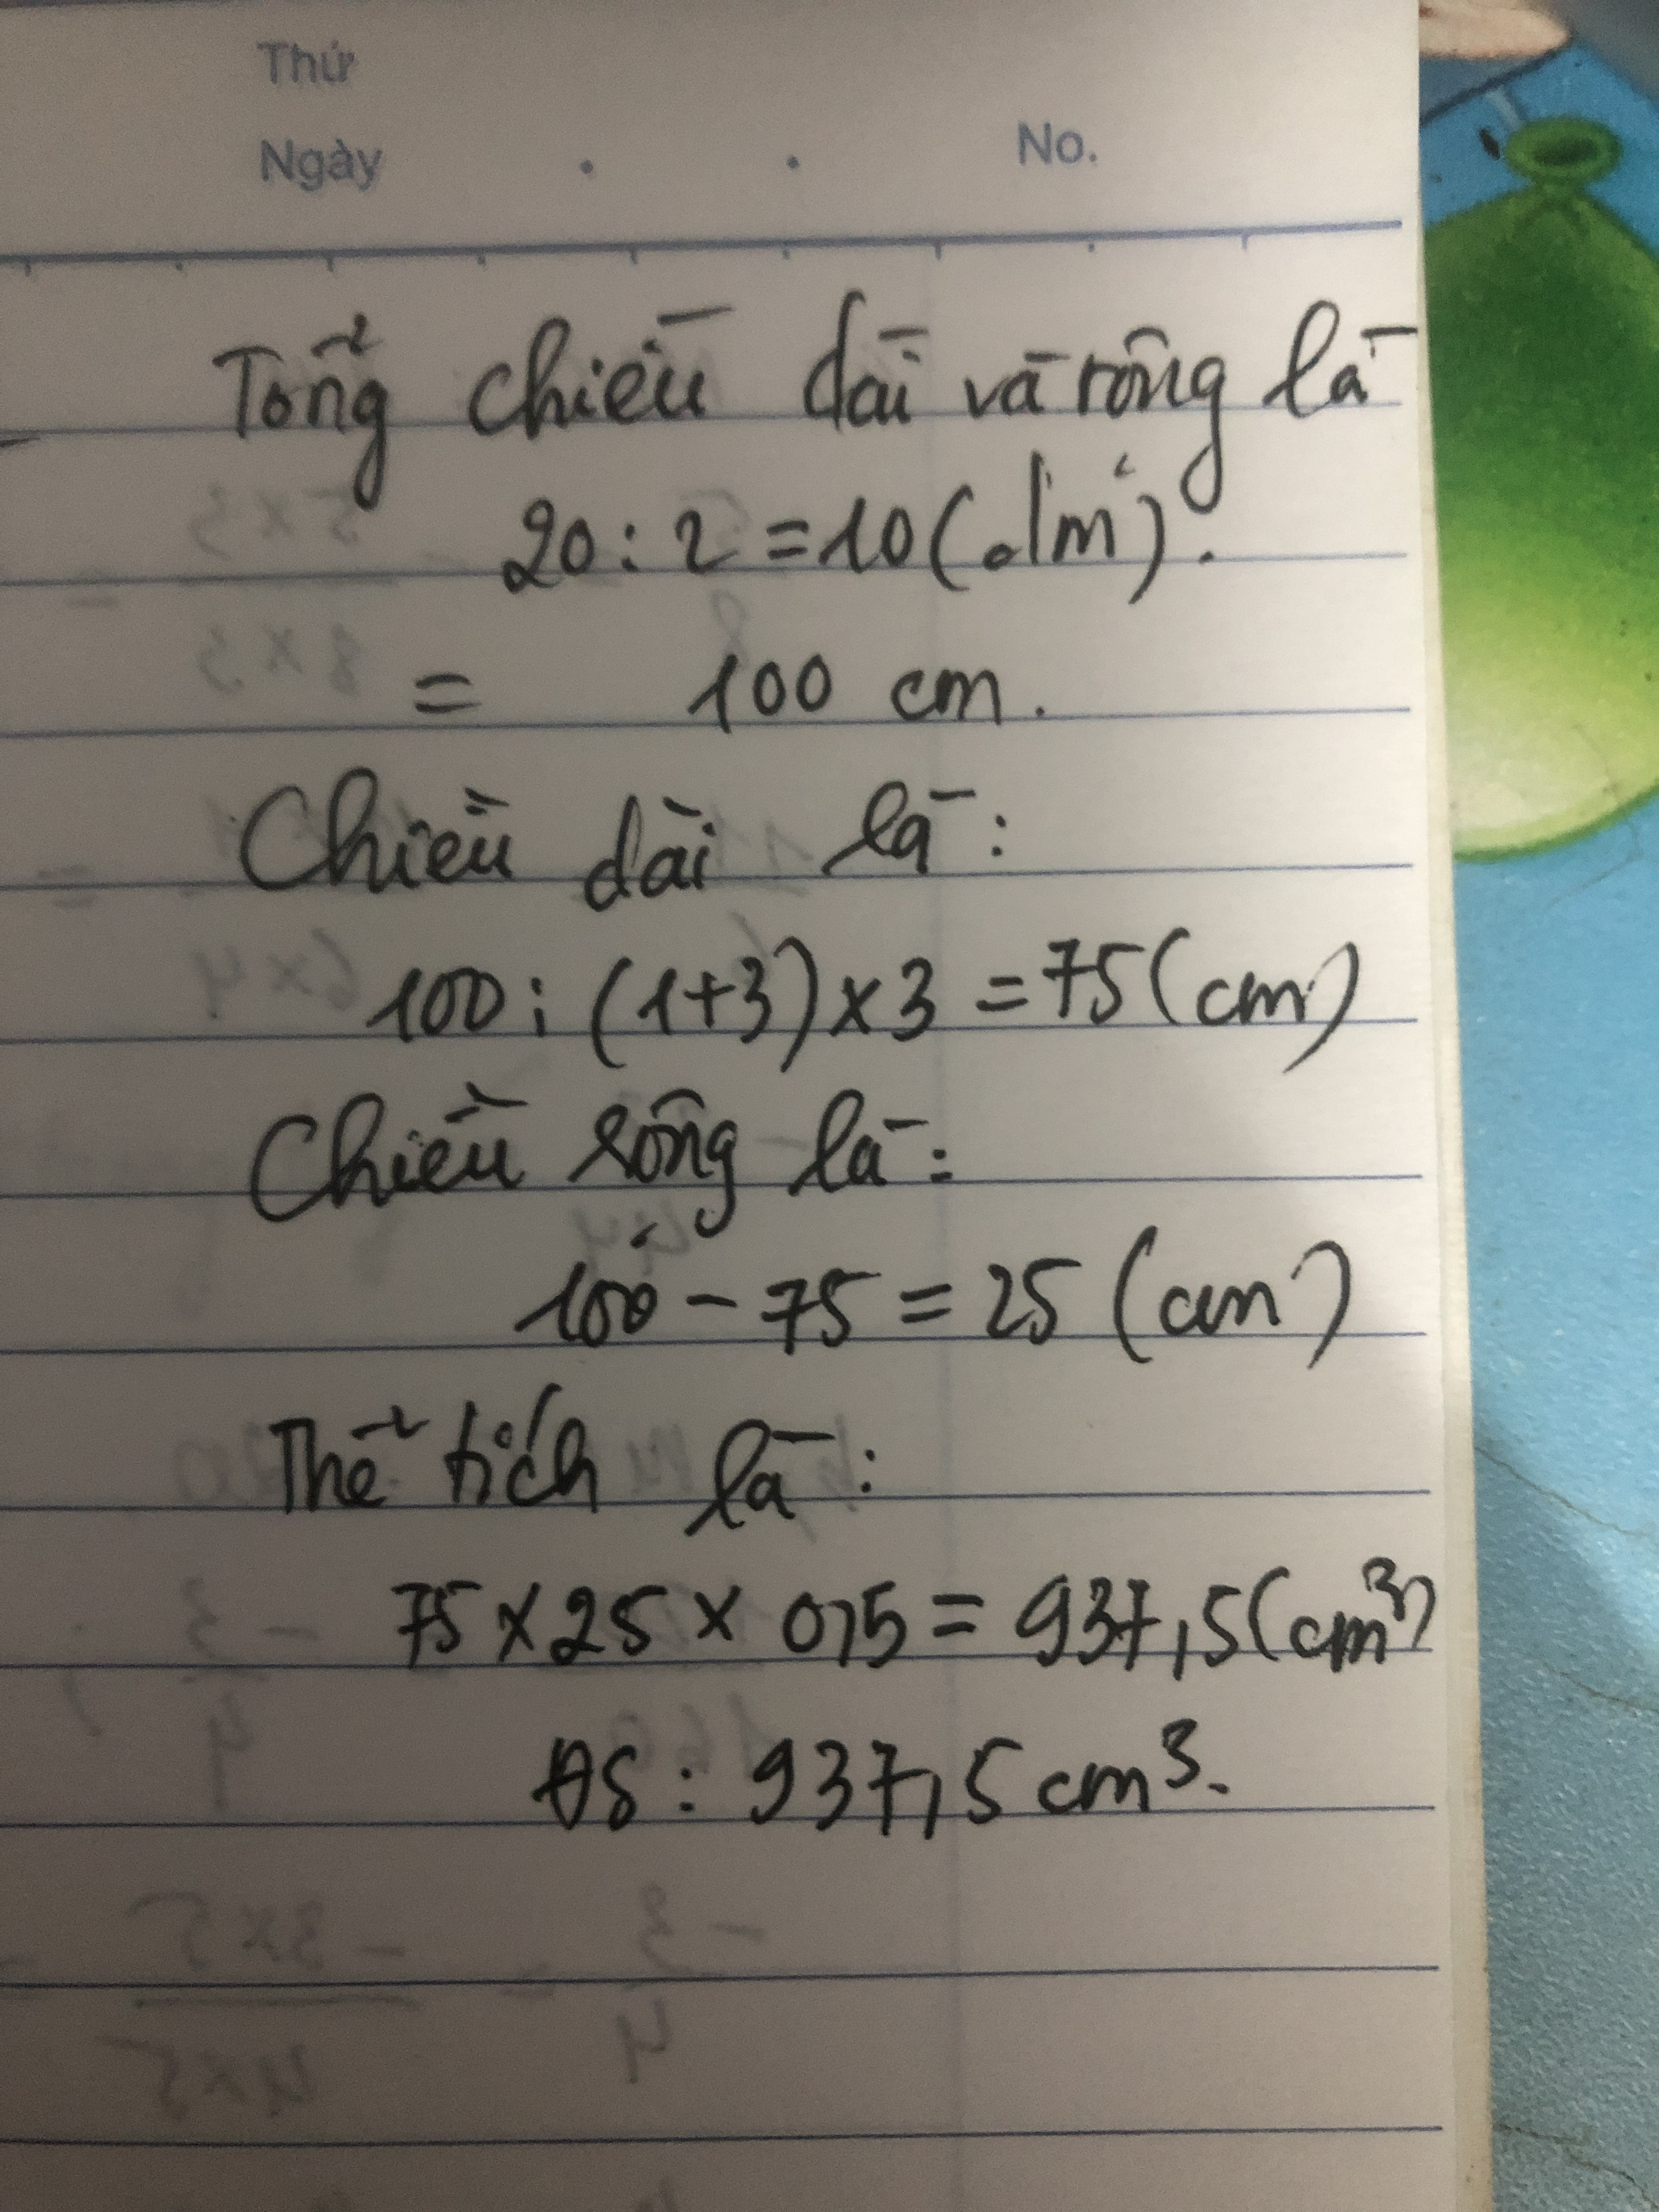 Thứ
Ngày . . No.
Tổng chiều dài và rộng là
20 : 2 = 10 (dm).
= 100 cm.
Chiều dài là :
100 : (1+3) x 3 = 75 (cm)
Chiều rộng là :
100 - 75 = 25 (cm)
Thể tích là :
75 x 25 x 0,5 = 937,5 (cm³)
ĐS : 937,5 cm³.